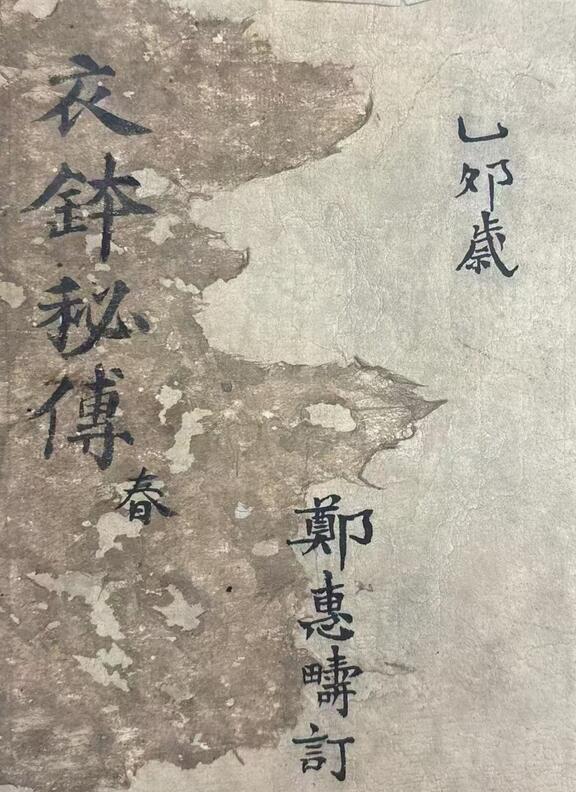 乙夘歳
鄭惠疇訂
衣鉢秘傳
春